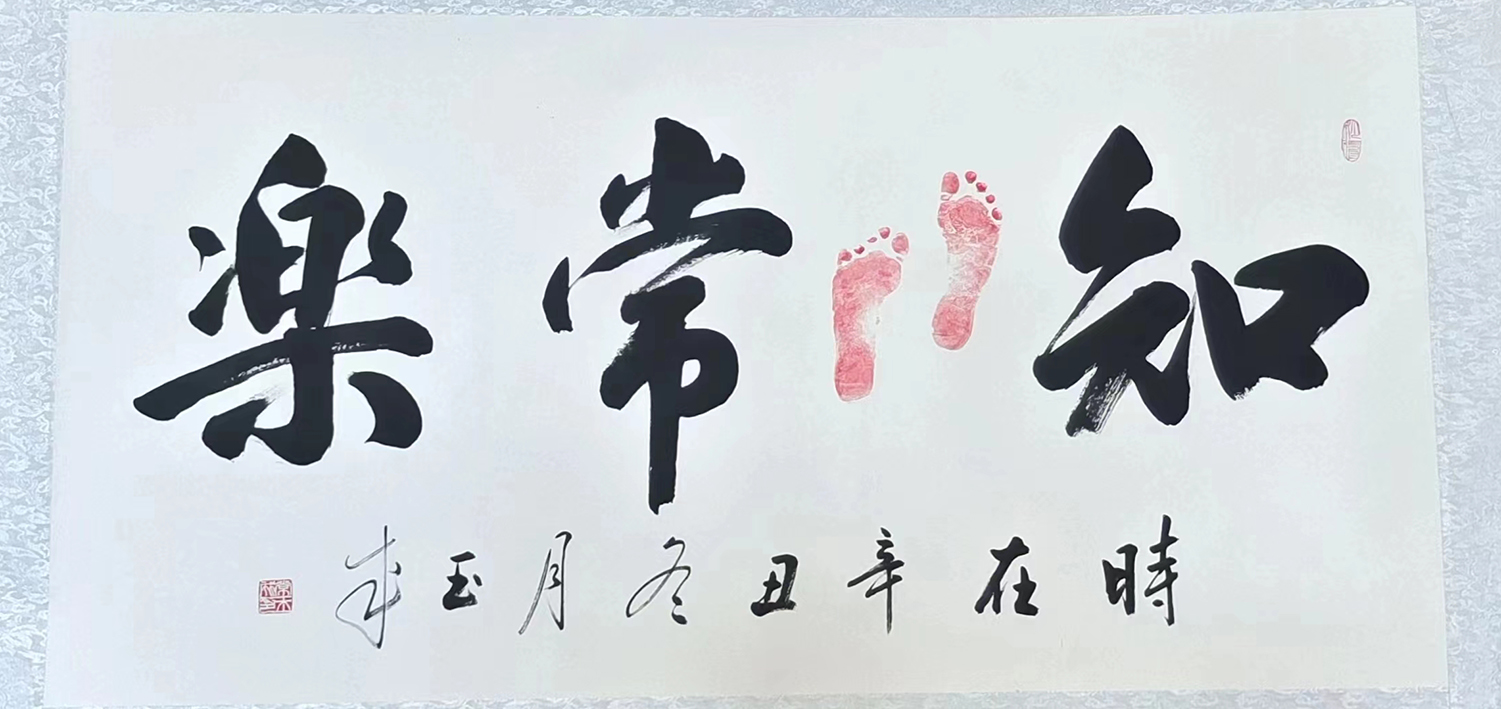 知常樂
時在辛丑冬月玉